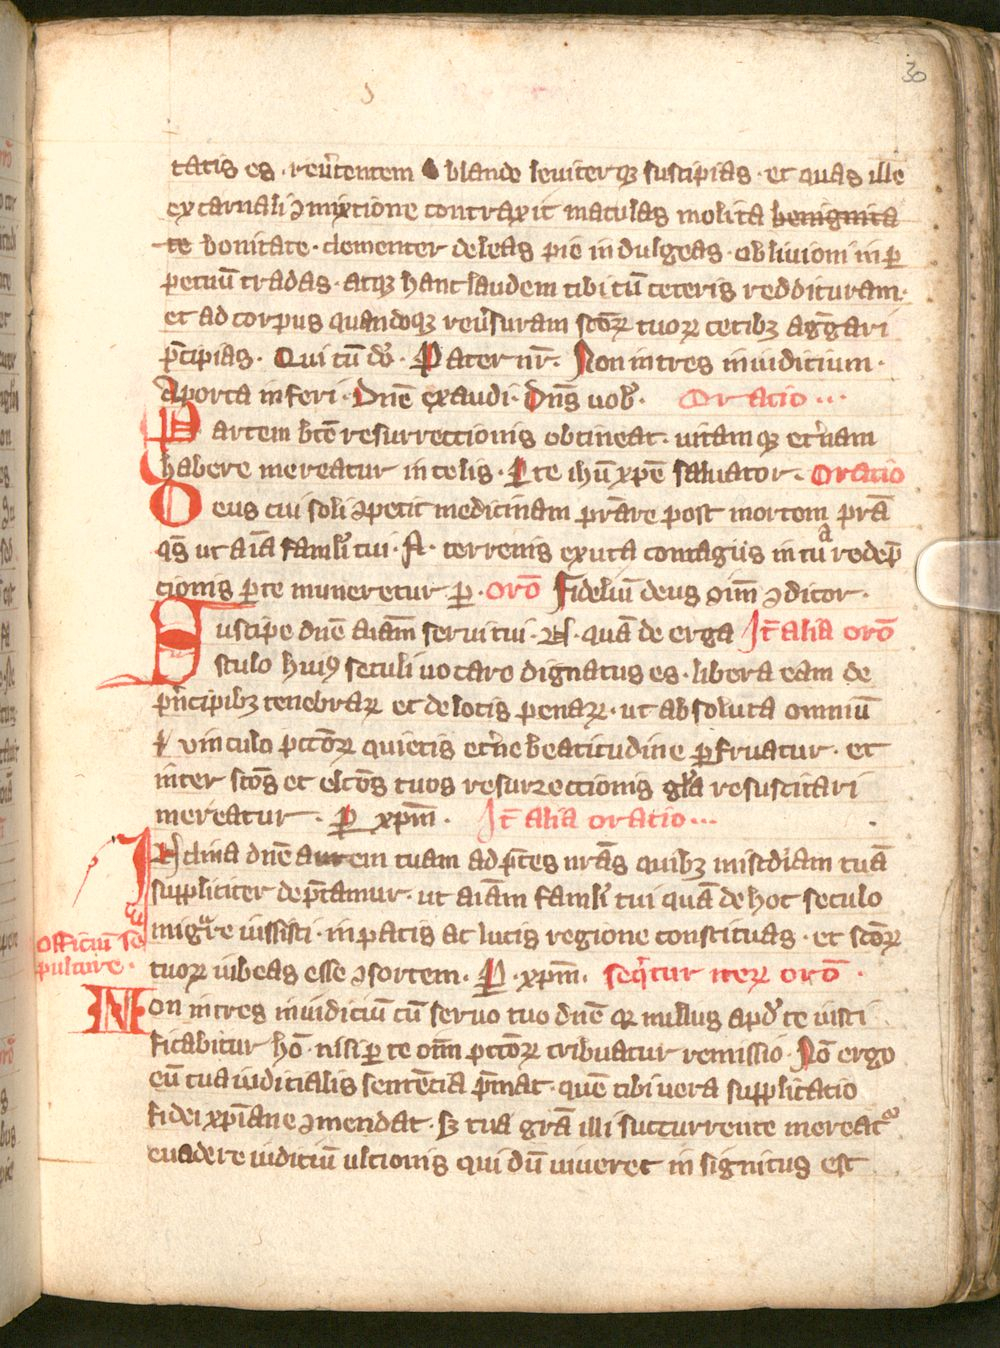 30
tatis es · reu̾tentem blande leuiterqꝫ suscipias · et quas ille
ex carnali ꝯmixtione contraxit maculas molita benignita
te bonitate · clementer deleas pie indulgeas · obliuioni in ꝑ
petuū tradas · atqꝫ hanc laudem tibi cū ceteris reddituram ·
et ad corpus quandoqꝫ reu̾suram sc̄oꝝ tuoꝝ cetibꝫ aggͣgari
p̄cipias · Qui cū do᷒ · Pater nr̄ · Non intres in iudicium ·
A porta inferi · Dn̄e exaudi · Dn̄s uob̾ · Oratio ···
Partem bt̄e resurrectionis obtineat · uitamqꝫ et̾nam
habere mereatur in celis · P te ihū xp̄e saluator · Oratio
Deus cui soli ꝯpetit medicinam pr̄are post mortem pr̄a
qs̄ ut aīa famli̾ tui · N · terrenis exuta contagiis in tua redep̄
cionis ꝑte muneretur ꝑ · orō Fideliū deus oīm ꝯditor ·
Suscipe dn̄e aīam serui tui · N · quā de erga It̄ alia orō
stulo huiꝰ seculi uocare dignatus es · libera eam de
pͥncipibꝫ tenebraꝝ et de locis penaꝝ · ut absoluta omniū
vinculo pcc̄oꝝ quietis et̾ne beatitudine ꝑfruatur · et
inter sc̄os et elc̄os tuos resurrectionis glͣa resuscitari
mereatur · P xp̄m · It̄ alia oratio ···
Inclina dn̄e aurem tuam ad p̄ces nr̄as quibꝫ mis̄cdiam tuā
suppliciter dep̄camur · ut aīam famli̾ tui quā de hoc seculo
migͣre iussisti · in pacis ac lucis regione constituas · et sc̄oꝝ
Officiū se
pulture ·
tuoꝝ iubeas esse ꝯsortem · P · xp̄m · seqͥtur iteꝝ orō ·
Non intres in iudiciū cū seruo tuo dn̄e qꝛ nullus apd̾ te iusti
ficabitur hō · nisi ꝑ te oīm pcc̄oꝝ tribuatur remissio · Nō ergo
eū tua iudicialis sentēcia p̄mat · quē tibi uera supplicacio
fidei xp̄iane ꝯmendat · Sꝫ tua grā illi succurrente mereatᷣ
euadere iudiciū ulcionis qui dū uiueret in signitus est